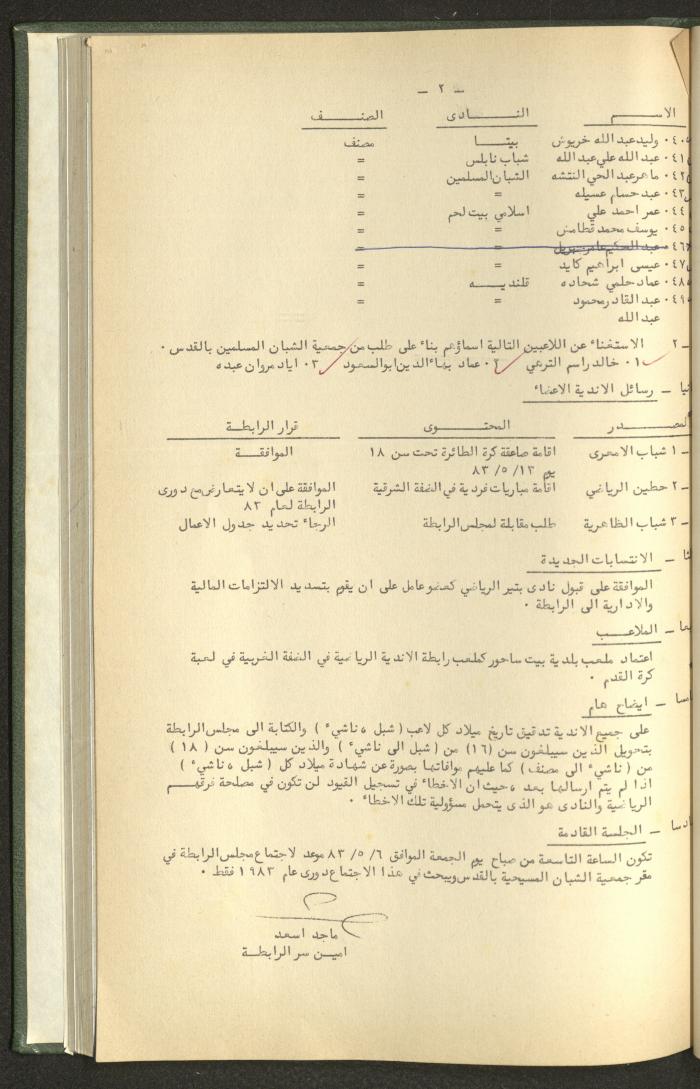 - ٢ -
الاســـم النـــادى الصنـــف
٤٠٠ وليد عبد الله خريوش بيتـــا مصنف
٤١٠ عبد الله علي عبد الله شباب نابلس =
٤٢٠ ماهر عبد الحي النتشه الشبان المسلمين =
٤٣٠ عبد حسام عسيله = =
٤٤٠ عمر احمد علي اسلامي بيت لحم =
٤٥٠ يوسف محمد قطامش = =
٤٦٠ عبد الحكيم عامر = =
٤٧٠ عيسى ابراهيم كايد = =
٤٨٠ عماد حلمي شحاده قلنديـــه =
٤٩٠ عبد القادر محمود = =
عبد الله
٢ - الاستغناء عن اللاعبين التالية اسماؤهم بناء على طلب من جمعية الشبان المسلمين بالقدس ٠
١٠ خالد راسم الترهي ٢٠ عماد بهاء الدين ابو السعود ٣٠ اياد مروان عبده
نيا - رسائل الاندية الاعضاء
المصـــدر المحتـــوى قرار الرابطـة
١ - شباب الامعرى اقامة صاعقة كرة الطائرة تحت سن ١٨ الموافقـــة
يوم ١٣ / ٥ / ٨٣
٢ - حطين الرياضي اقامة مباريات فردية في الضفة الشرقية الموافقة على ان لا يتعارض مع دورى
الرابطة لعام ٨٣
٣ - شباب الظاهرية طلب مقابلة لمجلس الرابطة الرجاء تحديد جدول الاعمال
ثا - الانتسابات الجديدة
الموافقة على قبول نادى بتير الرياضي كعضو عامل على ان يقوم بتسديد الالتزامات المالية
والادارية الى الرابطة ٠
عا - الملاعـــب
اعتماد ملعب بلدية بيت ساحور كملعب رابطة الاندية الرياضية في الضفة الغربية في لعبة
كرة القدم ٠
مسا - ايضاح هام
على جميع الاندية تدقيق تاريخ ميلاد كل لاعب ( شبل ، ناشيء ) والكتابة الى مجلس الرابطة
بتحويل الذين سيبلغون سن ( ١٦ ) من ( شبل الى ناشيء ) والذين سيبلغون سن ( ١٨ )
من ( ناشيء الى مصنف ) كما عليهم موافاتنا بصورة عن شهادة ميلاد كل ( شبل ، ناشيء )
اذا لم يتم ارسالها بعد ، حيث ان الاخطاء في تسجيل القيود لن تكون في مصلحة فرقهـــم
الرياضية والنادى هو الذى يتحمل مسؤولية تلك الاخطاء ٠
ادسا - الجلسة القادمة
تكون الساعة التاسعة من صباح يوم الجمعة الموافق ٦ / ٥ / ٨٣ موعد لاجتماع مجلس الرابطة في
مقر جمعية الشبان المسيحية بالقدس ويبحث في هذا الاجتماع دورى عام ١٩٨٣ فقط ٠
ماجد اسعد
اميـــن سر الرابطـــة